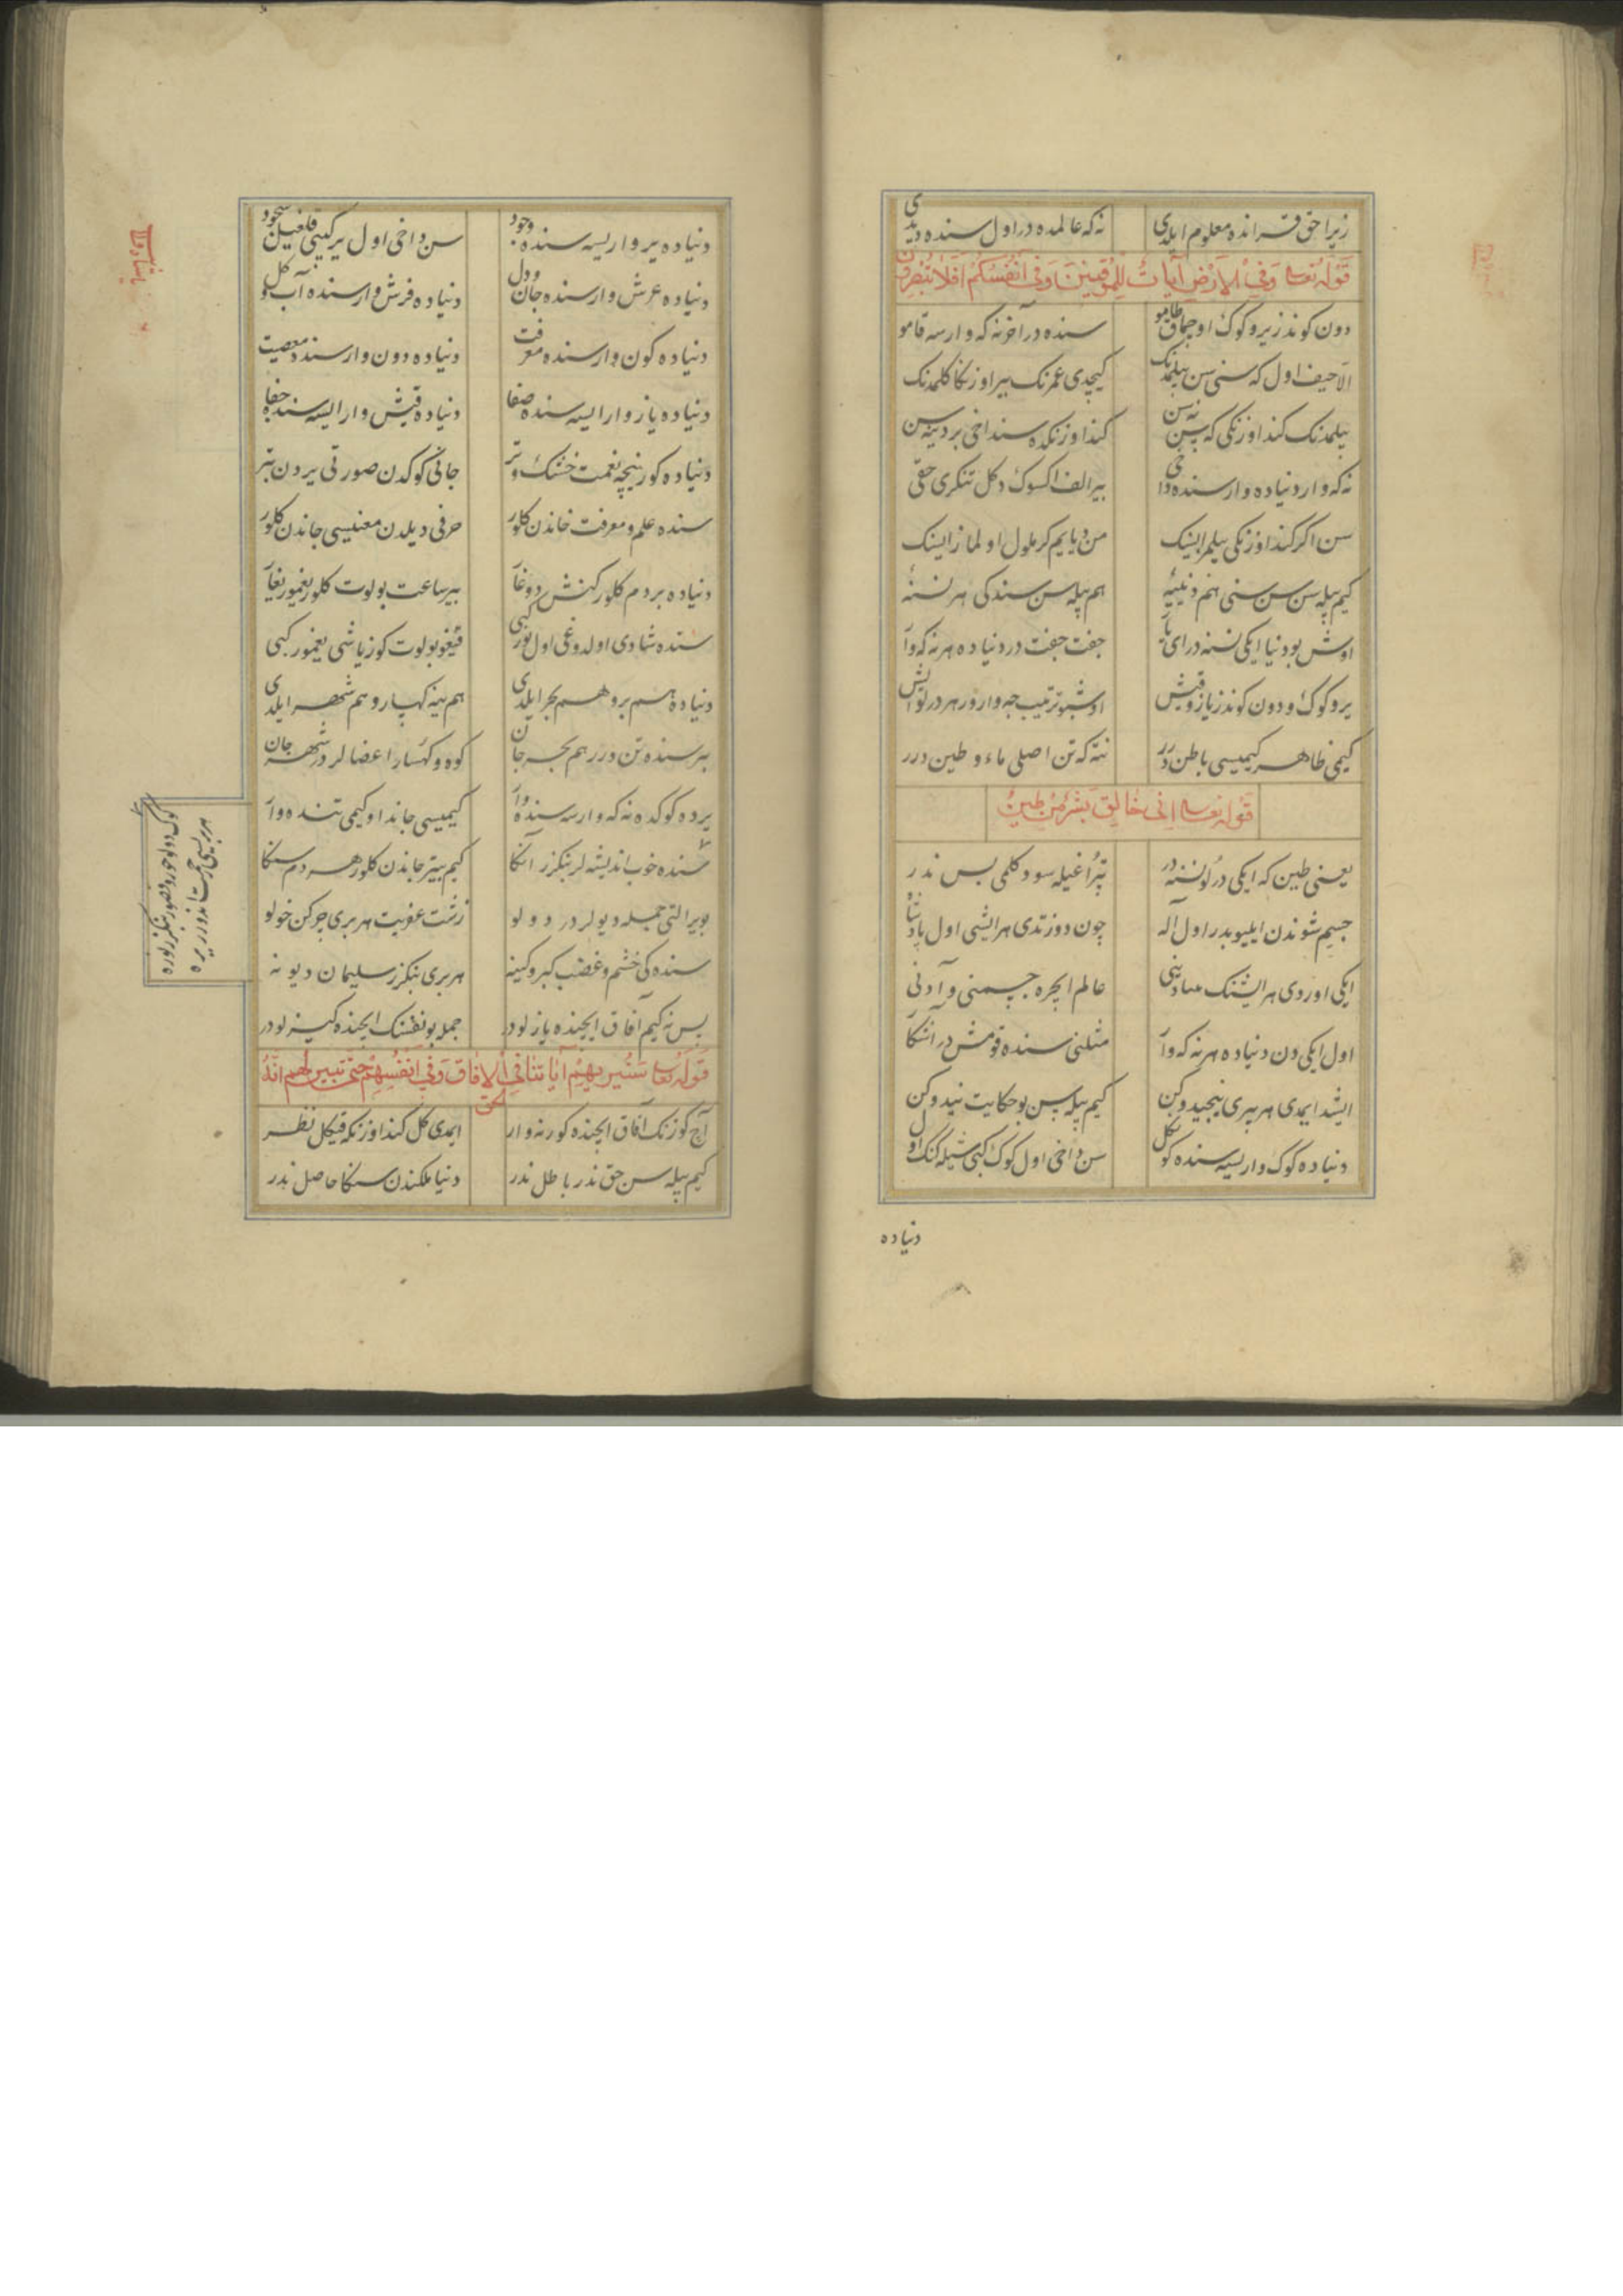 زیرا حق قرانده معلوم ایلدی نه که عالمده در اول سنده دیدی
قوله تعالی وفي الارض آيات للموقنين وفي انفسكم افلا تبصرون
دون کوندز یر و کوک اوچماق طامو سنده در آخر نه که وارسه قامو
الا حیف اول که سنی سن بیلمدنک کیچدی عمرنک بیر اوزنکا کلمدنک
بیلمدنک کند اوزنکی که نه سن کند اوزنکده سنداخی بر دینه سن
نه که وار دنیاده وار سنده داخی بیر الف اکسوک دکل تنکری حقی
سن اکر کند اوزنکی بیلمز ایسنک من دیایم کر ملول اولماز ایسنک
کیم بیله سن سن سنی هم دنییه هم بیله سن سندکی هر نسنه
اوش بو دنیا ایکی نسنه در ای یار جفت جفت در دنیاده هر نه که وار
یر و کوک و دون کوندز یاز و قیش اوشبو ترتیبجه وارور هر درلو ایش
کیمی ظاهر کیمیسی باطن درر نته که تن اصلی ماء و طین درر
قوله تعالی اني خالق بشر من طين
یعنی طین که ایکی درلو نسنه در تپراغیله سو دکلمی بس ندر
جسم شوندن ایلیوبدر اول اله چون دوزتدی هر ایشی اول پادشا
ایکی اوردی هر ایشنک بنیادنی عالم ایچره جسمنی و آدنی
اول ایکی دن دنیاده هر نه که وار مثلنی سنده قومش در آشکار
ایشد ایمدی هر بیری نیجیدوکن کیم بیله سن بو حکایت نیدوکن
دنیاده کوک واریسه سنده کوکل سن داخی اول کوک کبی شیله کنک اول
دنیاده
دنیاده یر واریسه سنده وجود سن داخی اول یر کیبی قلغیل سجود
دنیاده عرش وار سنده جان و دل دنیاده فرش وار سنده آب و کل
دنیاده کون وار سنده معرفت دنیاده دون وار سنده معصیت
دنیاده یاز وار ایسه سنده صفا دنیاده قیش وار ایسه سنده جفا
دنیاده کور نیچه نعمت خشک و تر جانی کوکدن صورتی یردن بتر
سنده علم و معرفت جاندن کلور حرفی دیلدن معنیسی جاندن کلور
دنیاده بر دم کلور کنش دوغار بیر ساعت بولوت کلور یغمور یغار
سنده شادی اولدوغی اول نور کبی قیغو بولوت کوز یاشی یغمور کبی
دنیاده هم بر و هم بحر ایلدی هم ینه کهسار و هم شهر ایلدی
بر سنده تن درر هم بحر جان کوه و کهسار اعضالر در شهر جان
یرده کوکده نه که وارسه سنده وار کیمیسی جاندا و کیمی تنده وار
سنده خوب اندیشه لر بنکزر انکا کیم بیتر جاندن کلور هر دم سنکا
بو یر التی جمله دیولر در دولو زشت عفریت هر بری چرکن خولو
سنده کی خشم و غضب کبر و کینه هر بری بنکزر سلیمان دیونه
بس نه کیم آفاق ایچنده یازلودر جمله بو نفسنک ایچنده کیزلودر
قوله تعالی سنريهم آياتنا في الافاق وفي انفسهم حتى تبين لهم انه الحق
آچ کوزنک آفاق ایچنده کور نه وار ایمدی کل کند اوزنکه قیکل نظر
کیم بیله سن حق ندر باطل ندر دنیا ملکندن سنکا حاصل ندر